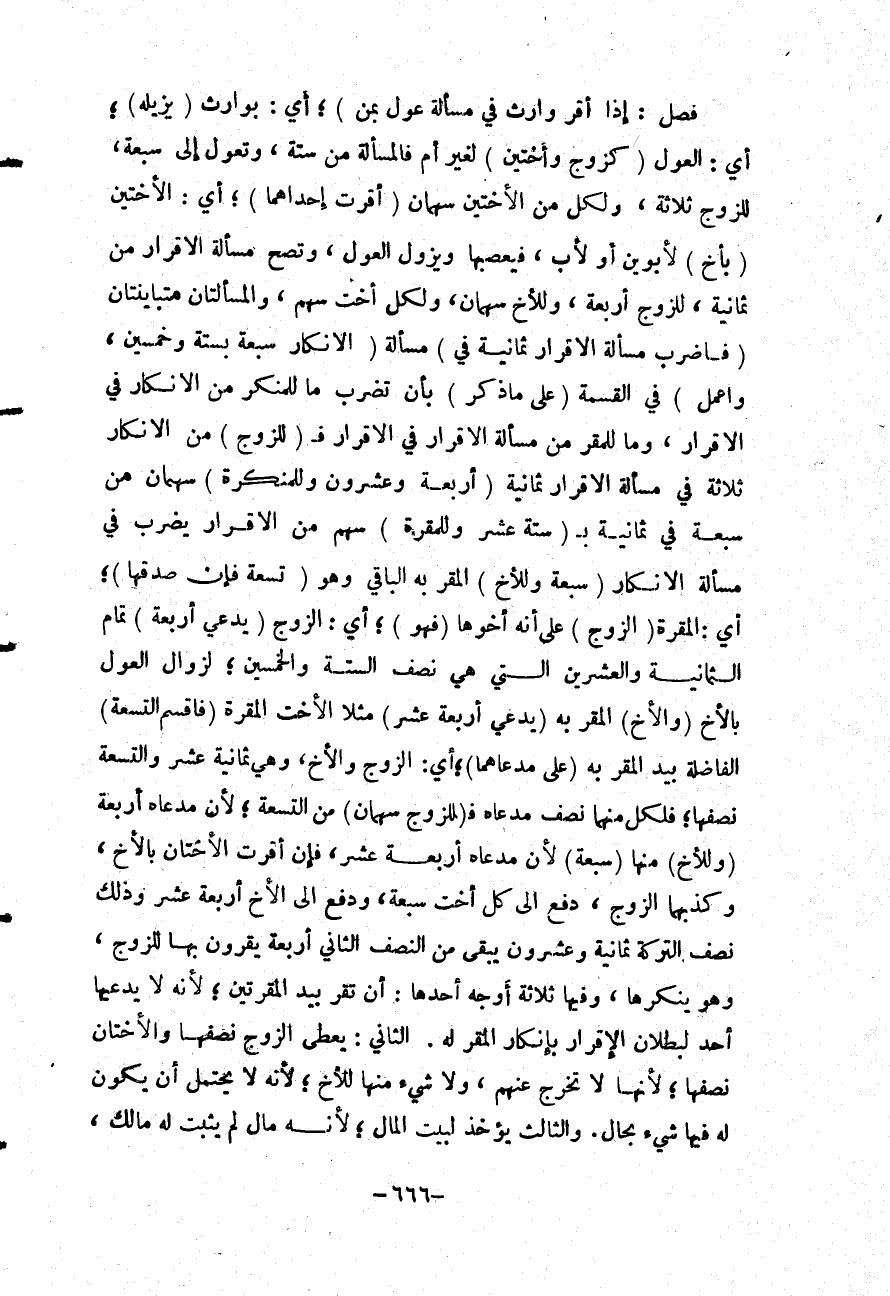 فصل : إذا أقر وارث في مسألة عول بمن ) ؛ أي : بوارث ( يزيله) ؛
أي : العول ( كزوج وأختين ) لغير أم فالمسألة من ستة ، وتعول إلى سبعة ،
للزوج ثلاثة ، ولكل من الأختين سهمان ( أقرت إحداهما ) ؛ أي : الأختين
( بأخ ) لأبوين أو لأب ، فيعصبها ويزول العول ، وتصح مسألة الاقرار من
ثمانية ، للزوج أربعة ، وللأخ سهمان ، ولكل أخت سهم ، والمسألتان متباينتان
( فاضرب مسألة الاقرار ثمانية في ) مسألة ( الانكار سبعة بستة وخمسين ،
واعمل ) في القسمة ( على ماذكر ) بأن تضرب ما للمنكر من الانكار في
الاقرار ، وما للمقر من مسألة الاقرار في الاقرار فـ ( للزوج ) من الانكار
ثلاثة في مسألة الاقرار ثمانية ( أربعة وعشرون وللمنكرة ) سهمان من
سبعة في ثمانية بـ ( ستة عشر وللمقرة ) سهم من الاقرار يضرب في
مسألة الانكار ( سبعة وللأخ ) المقر به الباقي وهو ( تسعة فإن صدقها )؛
أي :المقرة( الزوج ) على أنه أخوها (فهو ) ؛ أي : الزوج ( يدعي أربعة ) تمام
الثمانية والعشرين التي هي نصف الستة والخمسين ؛ لزوال العول
بالأخ (والأخ) المقر به (يدعي أربعة عشر) مثلا الأخت المقرة (فاقسم التسعة)
الفاضلة بيد المقر به (على مدعاهما)؛أي: الزوج والأخ، وهي ثمانية عشر والتسعة
نصفها؛ فلكل منهما نصف مدعاه فـ(للزوج سهمان) من التسعة ؛ لأن مدعاه أربعة
(وللأخ) منها (سبعة) لأن مدعاه أربعة عشر، فإن أقرت الأختان بالأخ ،
وكذبهما الزوج ، دفع الى كل أخت سبعة، ودفع الى الأخ أربعة عشر وذلك
نصف التركة ثمانية وعشرون يبقى من النصف الثاني أربعة يقرون بها للزوج ،
وهو ينكرها ، وفيها ثلاثة أوجه أحدها : أن تقر بيد المقرتين ؛ لأنه لا يدعيها
أحد لبطلان الإقرار بإنكار المقر له . الثاني : يعطى الزوج نصفها والأختان
نصفها ؛ لأنها لا تخرج عنهم ، ولا شيء منها للأخ ؛ لأنه لا يحتمل أن يكون
له فيها شيء بحال. والثالث يؤخذ لبيت المال ؛ لأنه مال لم يثبت له مالك ،
-٦٦٦-